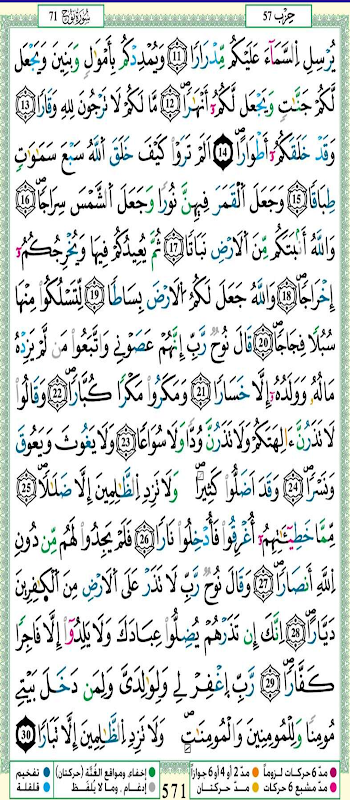 حِزْب 57
سُورَةُ نُوح 71
يُرْسِلِ اِ۬لسَّمَآءَ عَلَيْكُم مِّدْرَاراٗ 11 وَيُمْدِدْكُم بِأَمْوَٰلٖ وَبَنِينَ وَيَجْعَل
لَّكُمْ جَنَّٰتٖ وَيَجْعَل لَّكُمُۥٓ أَنْهَٰراٗ 12 مَّا لَكُمْ لَا تَرْجُونَ لِلهِ وَقَاراٗ 13
وَقَدْ خَلَقَكُمُۥٓ أَطْوَاراًۖ 14 اَلَمْ تَرَوْاْ كَيْفَ خَلَقَ اَ۬للَّهُ سَبْعَ سَمَٰوَٰتٖ
طِبَاقاٗ 15 وَجَعَلَ اَ۬لْقَمَرَ فِيهِنَّ نُوراٗ وَجَعَلَ اَ۬لشَّمْسَ سِرَاجاٗۖ 16
وَاللَّهُ أَنۢبَتَكُم مِّنَ اَ۬لَارْضِ نَبَاتاٗ 17 ثُمَّ يُعِيدُكُمْ فِيهَا وَيُخْرِجُكُمُۥٓ
إِخْرَاجاٗۖ 18 وَاللَّهُ جَعَلَ لَكُمُ اُ۬لَارْضَ بِسَاطاٗ 19 لِّتَسْلُكُواْ مِنْهَا
سُبُلاٗ فِجَاجاٗۖ 20 قَالَ نُوحٞ رَّبِّ إِنَّهُمْ عَصَوْنِے وَاتَّبَعُواْ مَن لَّمْ يَزِدْهُ
مَالُهُۥ وَوَلَدُهُۥٓ إِلَّا خَسَاراٗۖ 21 وَمَكَرُواْ مَكْراٗ كُبَّاراٗۖ 22 وَقَالُواْ
لَا تَذَرُنَّ ءَالِهَتَكُمْ وَلَا تَذَرُنَّ وُدّاٗ وَلَا سُوَاعاٗ 23 وَلَا يَغُوثَ وَيَعُوقَ
وَنَسْراٗۖ 24 وَقَدَ اَضَلُّواْ كَثِيراٗۖ وَلَا تَزِدِ اِ۬لظَّٰلِمِينَ إِلَّا ضَلَٰلاٗۖ 25
مِّمَّا خَطِيٓـَٰٔتِهِمُۥٓ أُغْرِقُواْ فَأُدْخِلُواْ نَاراٗ 26 فَلَمْ يَجِدُواْ لَهُم مِّن دُونِ
اِ۬للَّهِ أَنصَاراٗۖ 27 وَقَالَ نُوحٞ رَّبِّ لَا تَذَرْ عَلَى اَ۬لَارْضِ مِنَ اَ۬لْكٰ۪فِرِينَ
دَيَّاراًۖ 28 اِنَّكَ إِن تَذَرْهُمْ يُضِلُّواْ عِبَادَكَ وَلَا يَلِدُوٓاْ إِلَّا فَاجِراٗ
كَفَّاراٗۖ 29 رَّبِّ اِ۪غْفِرْ لِے وَلِوَٰلِدَيَّ وَلِمَن دَخَلَ بَيْتِے
مُومِناٗ وَلِلْمُومِنِينَ وَالْمُومِنَٰتِۖ وَلَا تَزِدِ اِ۬لظَّٰلِمِينَ إِلَّا تَبَاراٗۖ 30
مدّ 6 حركات لزوماً مدّ 2 أو 4 أو 6 جوازاً إخفاء، ومواقع الغُنَّة (حركتان) تفخيم
مدّ مشبع 6 حركات مدّ حركتان 571 إدغام، وما لا يُلفَظ قلقلة